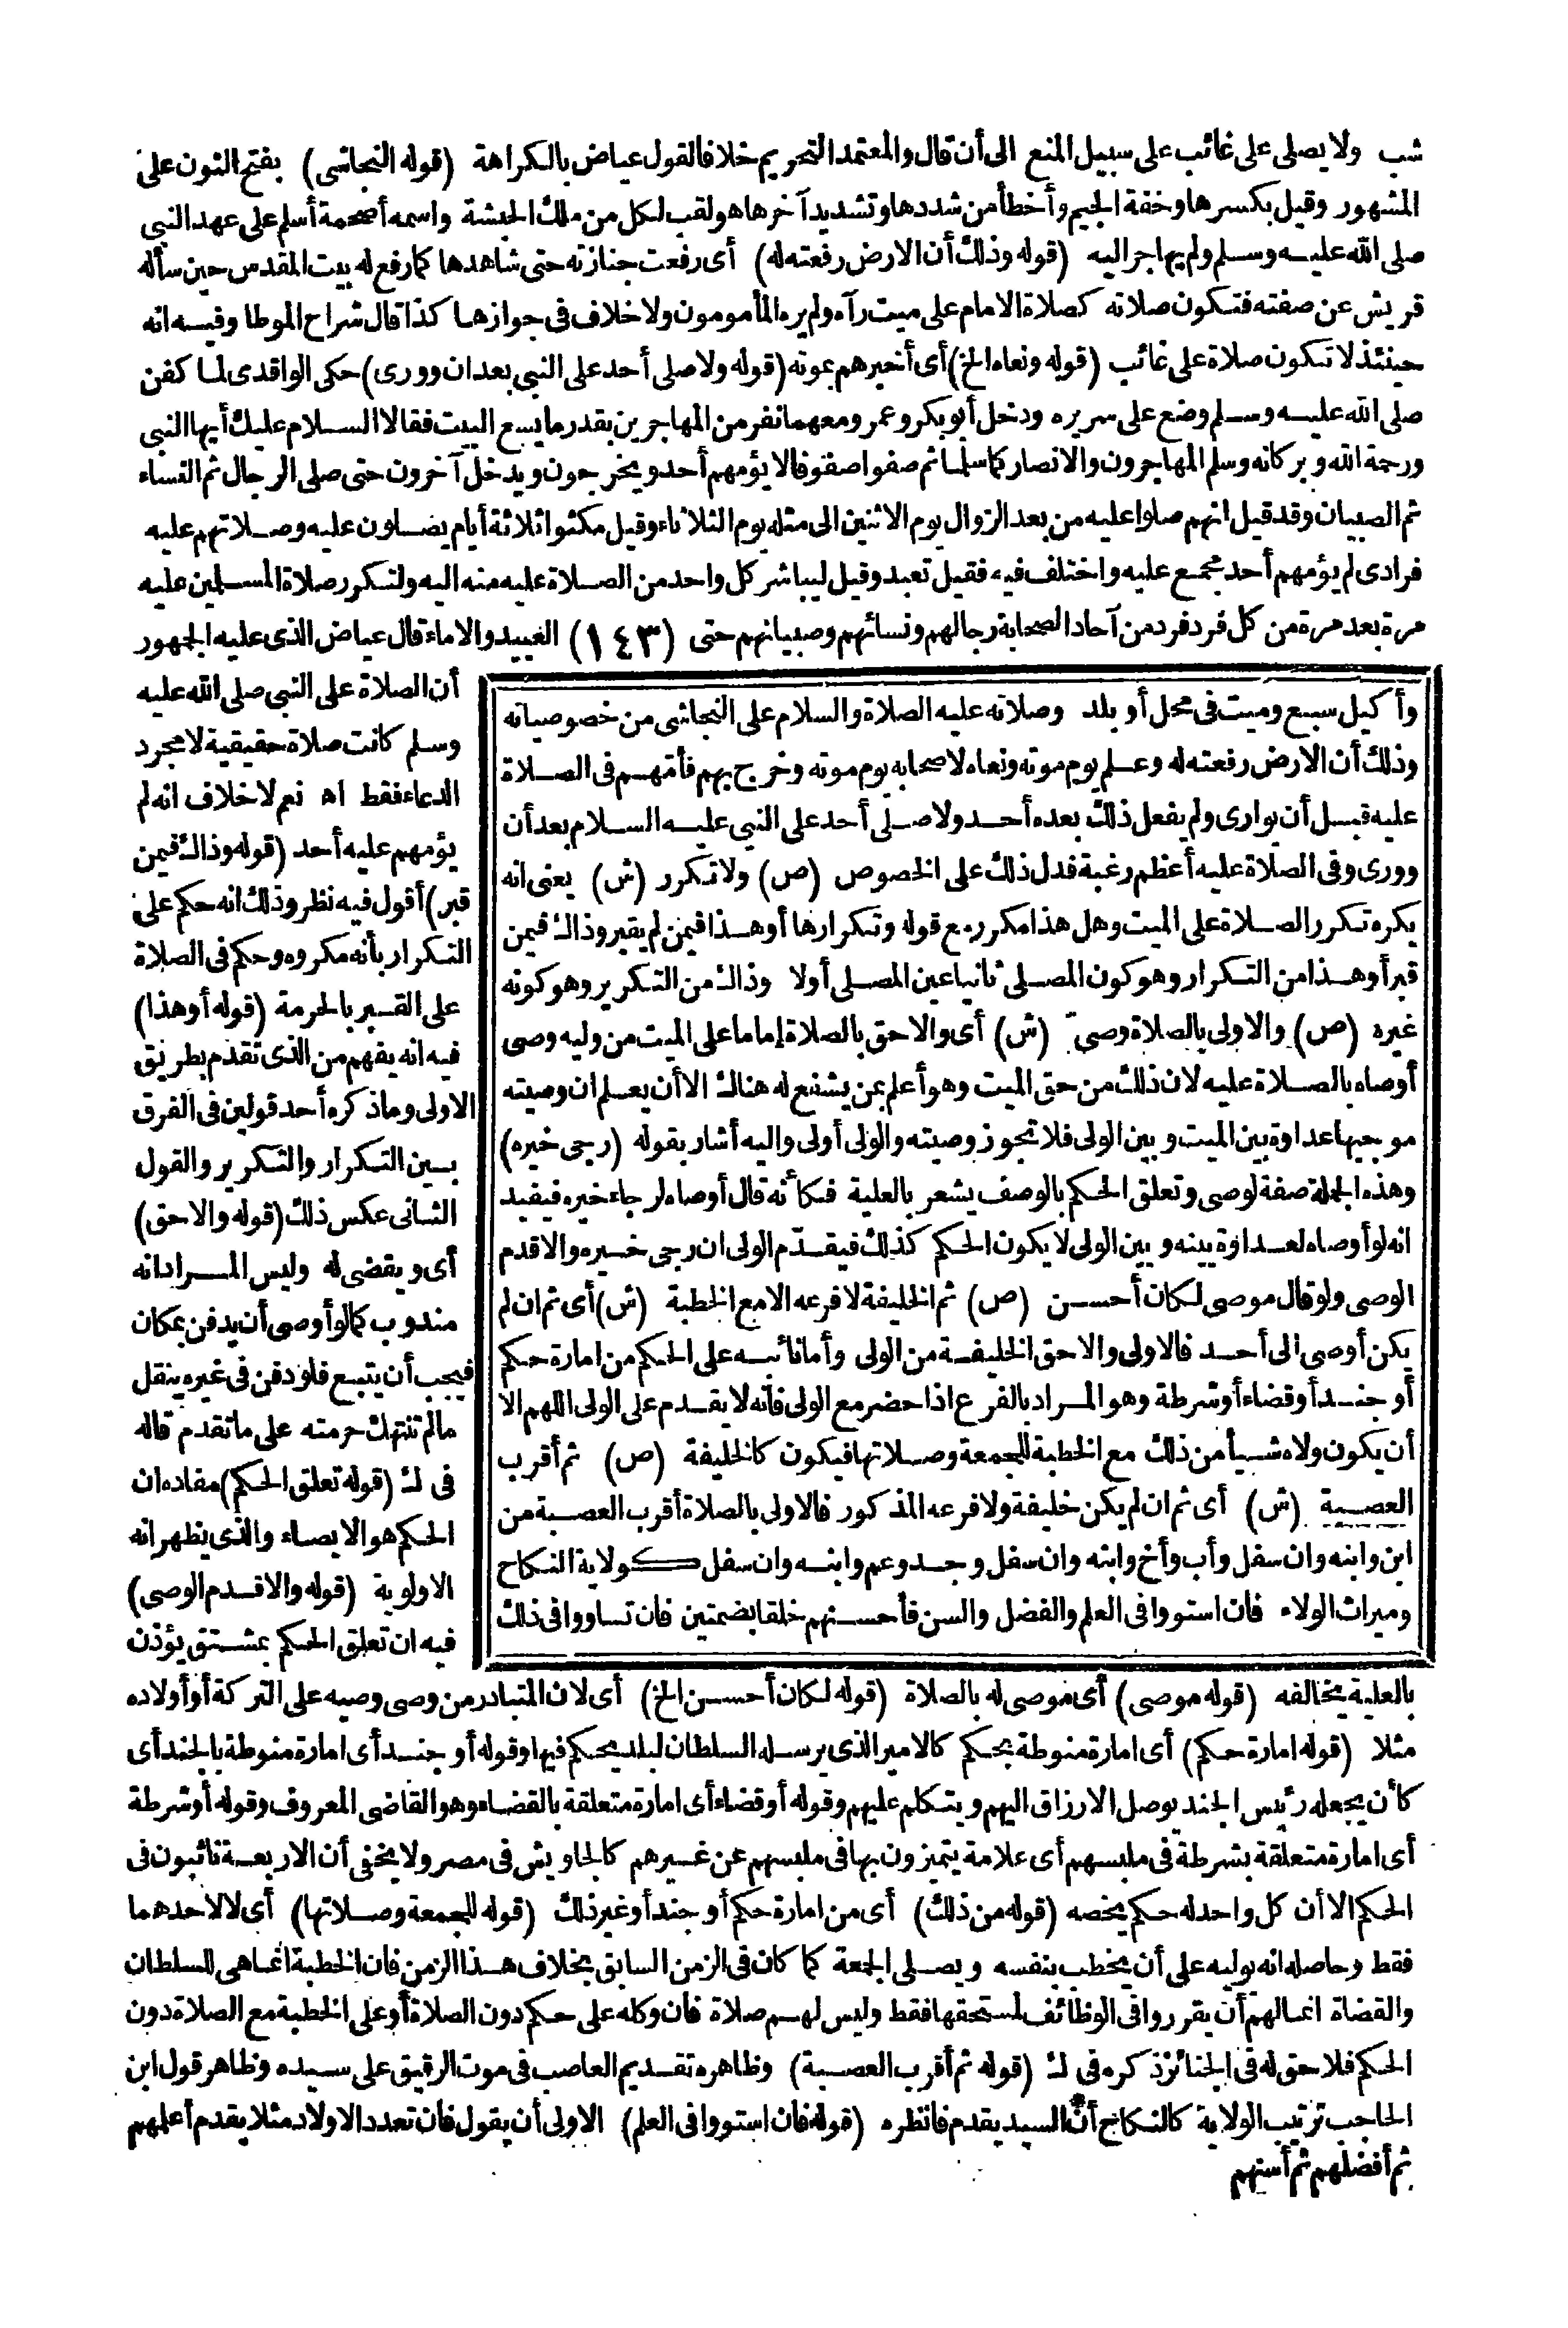 شب ولا يصلى على غائب على سبيل المنع الى أن قال والمعتمد التحريم خلافا لقول عياض بالكراهة (قوله النجاشى) بفتح النون على
المشهور وقيل بكسرها وخفة الجيم وأخطأ من شددها وتشديد آخرها هو لقب لكل من ملك الحبشة واسمه أصحمة أسلم على عهد النبى
صلى الله عليه وسلم ولم يهاجر اليه (قوله وذلك أن الارض رفعته له) أى رفعت جنازته حتى شاهدها كما رفع له بيت المقدس حين سأله
قريش عن صفته فتكون صلاته كصلاة الامام على ميت رآه ولم يره المأمومون ولا خلاف فى جوازها كذا قال شراح الموطا وفيه انه
حينئذ لا تكون صلاة على غائب (قوله ونعاه الخ) أى أخبرهم بموته (قوله ولا صلى أحد على النبى بعد ان وورى) حكى الواقدى لما كفن
صلى الله عليه وسلم وضع على سريره ودخل أبو بكر وعمر ومعهما نفر من المهاجرين بقدر ما يسع البيت فقالا السلام عليك أيها النبى
ورحمة الله وبركاته وسلم المهاجرون والانصار كما سلما ثم صفوا صفوفا لا يؤمهم أحد ويخرجون ويدخل آخرون حتى صلى الرجال ثم النساء
ثم الصبيان وقد قيل انهم صلوا عليه من بعد الزوال يوم الاثنين الى مثله يوم الثلاثاء وقيل مكثوا ثلاثة أيام يصلون عليه وصلاتهم عليه
فرادى لم يؤمهم أحد مجمع عليه واختلف فيه فقيل تعبد وقيل ليباشر كل واحد من الصلاة عليه منه اليه ولتكرر صلاة المسلمين عليه
مرة بعد مرة من كل فرد فرد من آحاد الصحابة رجالهم ونسائهم وصبيانهم حتى (١٤٣) العبيد والاماء قال عياض الذى عليه الجمهور
وأكيل سبع وميت فى محل أو بلد وصلاته عليه الصلاة والسلام على النجاشى من خصوصياته
وذلك أن الارض رفعته له وعلم يوم موته ونعاه لاصحابه يوم موته وخرج بهم فأمهم فى الصلاة
عليه قبل أن يوارى ولم يفعل ذلك بعده أحد ولا صلى أحد على النبى عليه السلام بعد أن
وورى وفى الصلاة عليه أعظم رغبة فدل ذلك على الخصوص (ص) ولا تكرر (ش) يعنى انه
يكره تكرر الصلاة على الميت وهل هذا مكرر مع قوله وتكرارها أو هذا فيمن لم يقبر وذاك فيمن
قبر أو هذا من التكرار وهو كون المصلى ثانيا عين المصلى أولا وذاك من التكرير وهو كونه
غيره (ص) والاولى بالصلاة وصى (ش) أى والاحق بالصلاة إماما على الميت من وليه وصى
أوصاه بالصلاة عليه لان ذلك من حق الميت وهو أعلم بمن يشفع له هناك الا أن يعلم ان وصيته
موجبها عداوة بين الميت وبين الولى فلا تجوز وصيته والولى أولى واليه أشار بقوله (رجى خيره)
وهذه الجملة صفة لوصى وتعلق الحكم بالوصف يشعر بالعلية فكأنه قال أوصاه لرجاء خيره فيفيد
انه لو أوصاه لعداوة بينه وبين الولى لا يكون الحكم كذلك فيقدم الولى ان رجى خيره والاقدم
الوصى ولو قال موصى لكان أحسن (ص) ثم الخليفة لا فرعه الا مع الخطبة (ش) أى ثم ان لم
يكن أوصى الى أحد فالاولى والاحق الخليفة من الولى وأما نائبه على الحكم من امارة حكم
أو جند أو قضاء أو شرطة وهو المراد بالفرع اذا حضر مع الولى فانه لا يقدم على الولى اللهم الا
أن يكون ولاه شيأ من ذلك مع الخطبة للجمعة وصلاتها فيكون كالخليفة (ص) ثم أقرب
العصبة (ش) أى ثم ان لم يكن خليفة ولا فرعه المذكور فالاولى بالصلاة أقرب العصبة من
ابن وابنه وان سفل وأب وأخ وابنه وان سفل وجد وعم وابنه وان سفل كولاية النكاح
وميراث الولاء فان استووا فى العلم والفضل والسن فأحسنهم خلقا بضمتين فان تساووا فى ذلك
أن الصلاة على النبى صلى الله عليه
وسلم كانت صلاة حقيقية لا مجرد
الدعاء فقط اه نعم لا خلاف انه لم
يؤمهم عليه أحد (قوله وذاك فيمن
قبر) أقول فيه نظر وذلك انه حكم على
التكرار بأنه مكروه وحكم فى الصلاة
على القبر بالحرمة (قوله أو هذا)
فيه انه يفهم من الذى تقدم بطريق
الاولى وما ذكره أحد قولين فى الفرق
بين التكرار والتكرير والقول
الثانى عكس ذلك (قوله والاحق)
أى ويقضى له وليس المراد انه
مندوب كما لو أوصى أن يدفن بمكان
فيجب أن يتبع فلو دفن فى غيره ينقل
مالم تنتهك حرمته على ما تقدم قاله
فى ك (قوله تعلق الحكم) مفاده ان
الحكم هو الايصاء والذى يظهر انه
الاولوية (قوله والاقدم الوصى)
فيه ان تعلق الحكم بمشتق يؤذن
بالعلية يخالفه (قوله موصى) أى موصى له بالصلاة (قوله لكان أحسن الخ) أى لان المتبادر من وصى وصيه على التركة أو أولاده
مثلا (قوله امارة حكم) أى امارة منوطة بحكم كالامير الذى يرسله السلطان لبلد يحكم فيها وقوله أو جند أى امارة منوطة بالجند أى
كأن يجعله رئيس الجند يوصل الارزاق اليهم ويتكلم عليهم وقوله أو قضاء أى امارة متعلقة بالقضاء وهو القاضى المعروف وقوله أو شرطة
أى امارة متعلقة بشرطة فى ملبسهم أى علامة يتميزون بها فى ملبسهم عن غيرهم كالجاويش فى مصر ولا يخفى أن الاربعة نائبون فى
الحكم الا أن كل واحد له حكم يخصه (قوله من ذلك) أى من امارة حكم أو جند أو غير ذلك (قوله للجمعة وصلاتها) أى لا لاحدهما
فقط وحاصله انه يوليه على أن يخطب بنفسه ويصلى الجمعة كما كان فى الزمن السابق بخلاف هذا الزمن فان الخطبة انما هى للسلطان
والقضاة انما لهم أن يقرروا فى الوظائف لمستحقها فقط وليس لهم صلاة فان وكله على حكم دون الصلاة أو على الخطبة مع الصلاة دون
الحكم فلا حق له فى الجنائز ذكره فى ك (قوله ثم أقرب العصبة) وظاهره تقديم العاصب فى موت الرقيق على سيده وظاهر قول ابن
الحاجب ترتيب الولاية كالنكاح أن السيد يقدم فانظره (قوله فان استووا فى العلم) الاولى أن يقول فان تعدد الاولاد مثلا يقدم أعلمهم
ثم أفضلهم ثم أسنهم